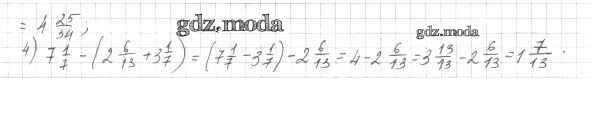 = 4 25/34;
gdz.moda
gdz.moda
4) 7 1/7 - (2 6/13 + 3 1/7) = (7 1/7 - 3 1/7) - 2 6/13 = 4 - 2 6/13 = 3 13/13 - 2 6/13 = 1 7/13.